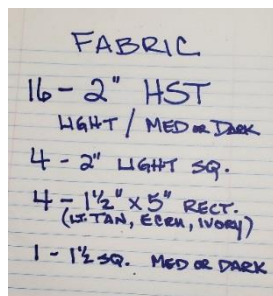 FABRIC
16 - 2" HST
LIGHT / MED OR DARK
4 - 2" LIGHT SQ.
4 - 1½" x 5" RECT.
(LT. TAN, ECRU, IVORY)
1 - 1½ SQ. MED OR DARK